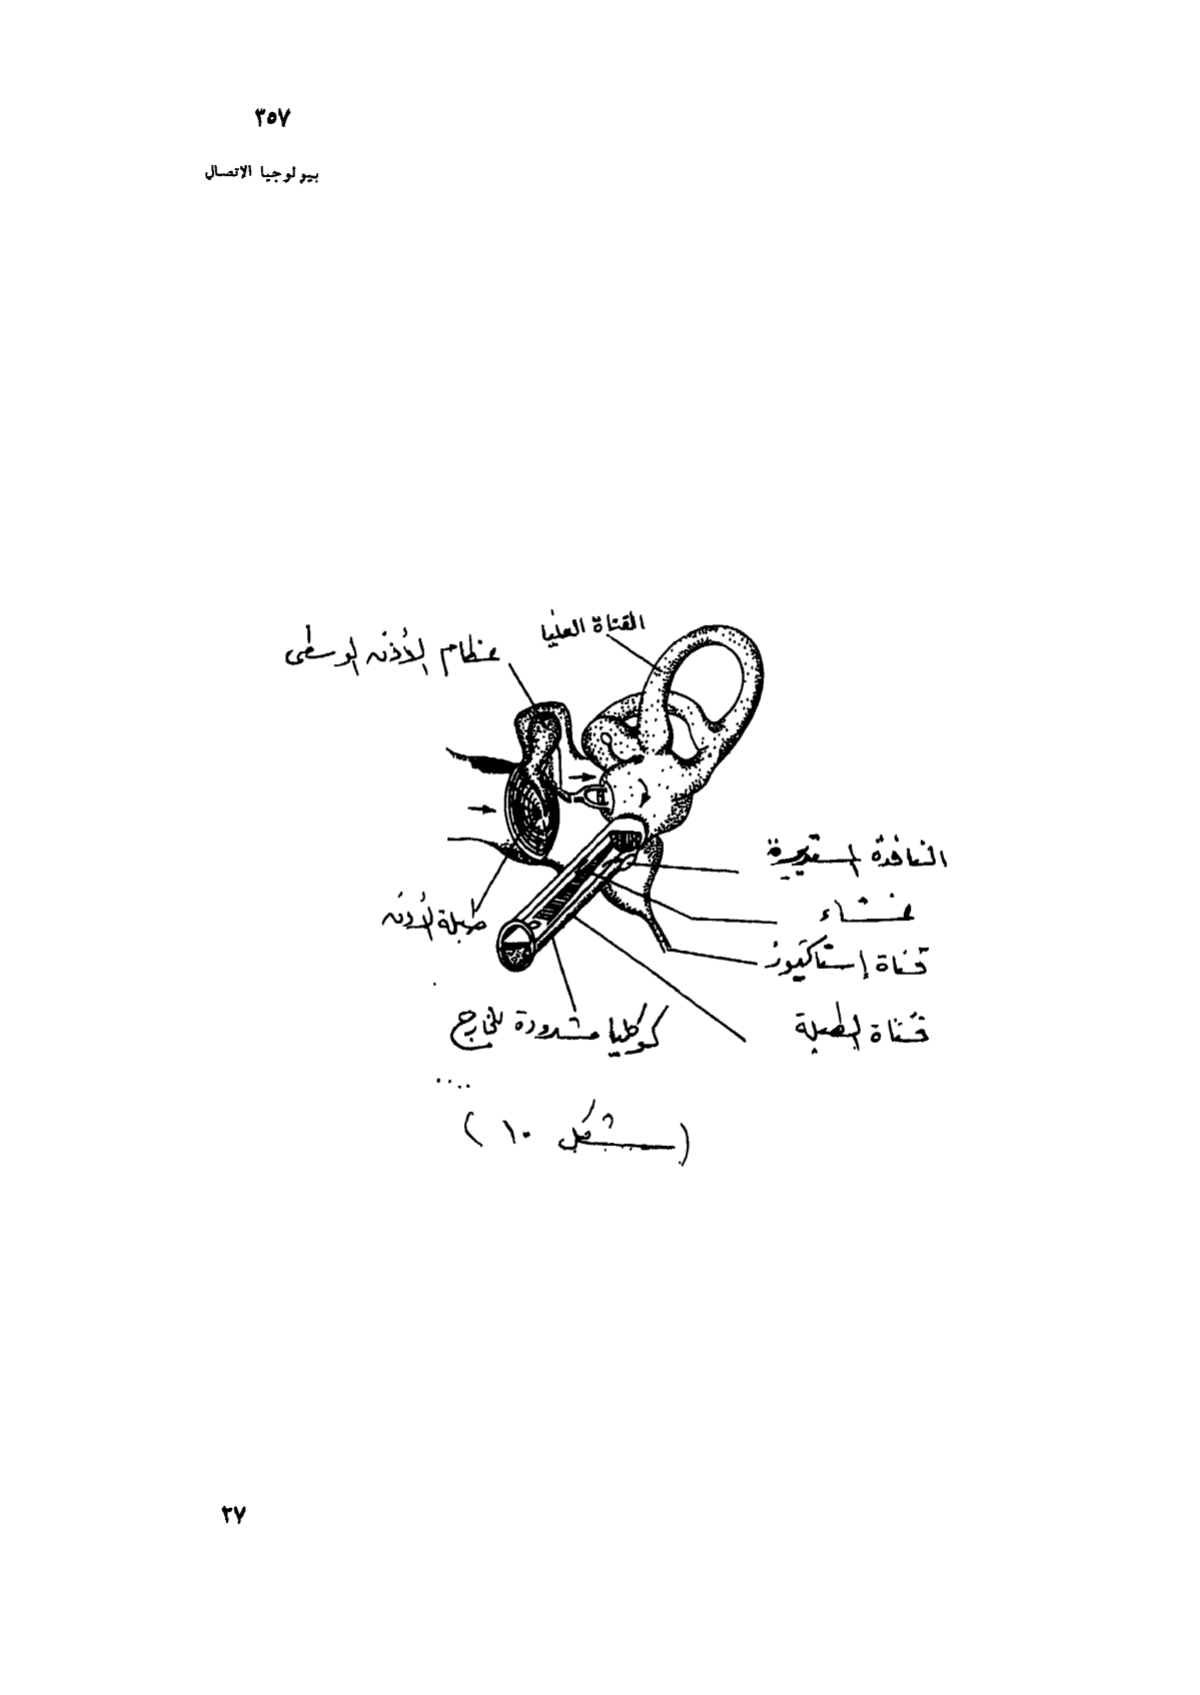 ٣٥٧
بيولوجيا الاتصال
القناة العليا
عظام الأذن الوسطى
النافذة المستديرة
غشاء
طبلة الأذن
قناة إستاكيوز
قناة الطبلة
كوكليا مشدودة للخارج
....
(شكل ١٠)
٢٧